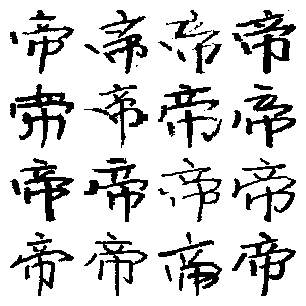 帝帝帝帝
帝帝帝帝
帝帝帝帝
帝帝帝帝